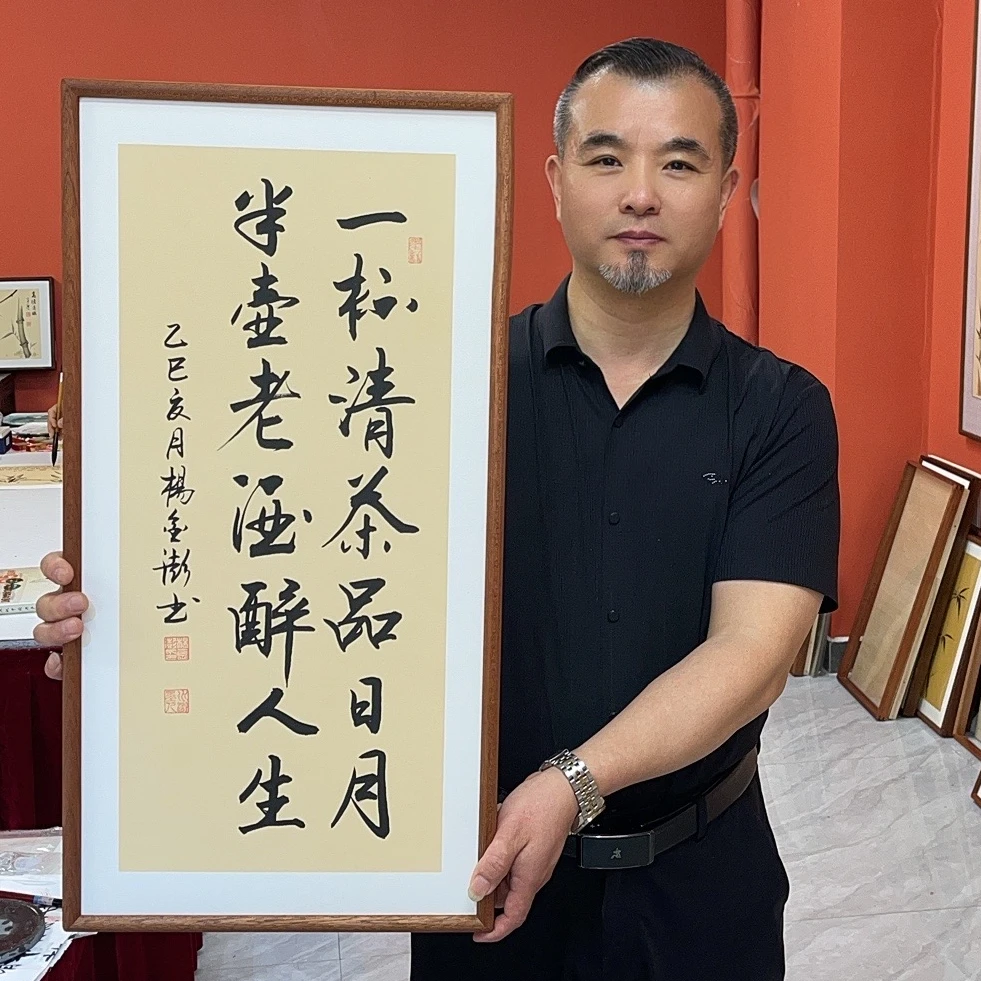 一杯清茶品日月
半壺老酒醉人生
乙巳亥月楊金澎书